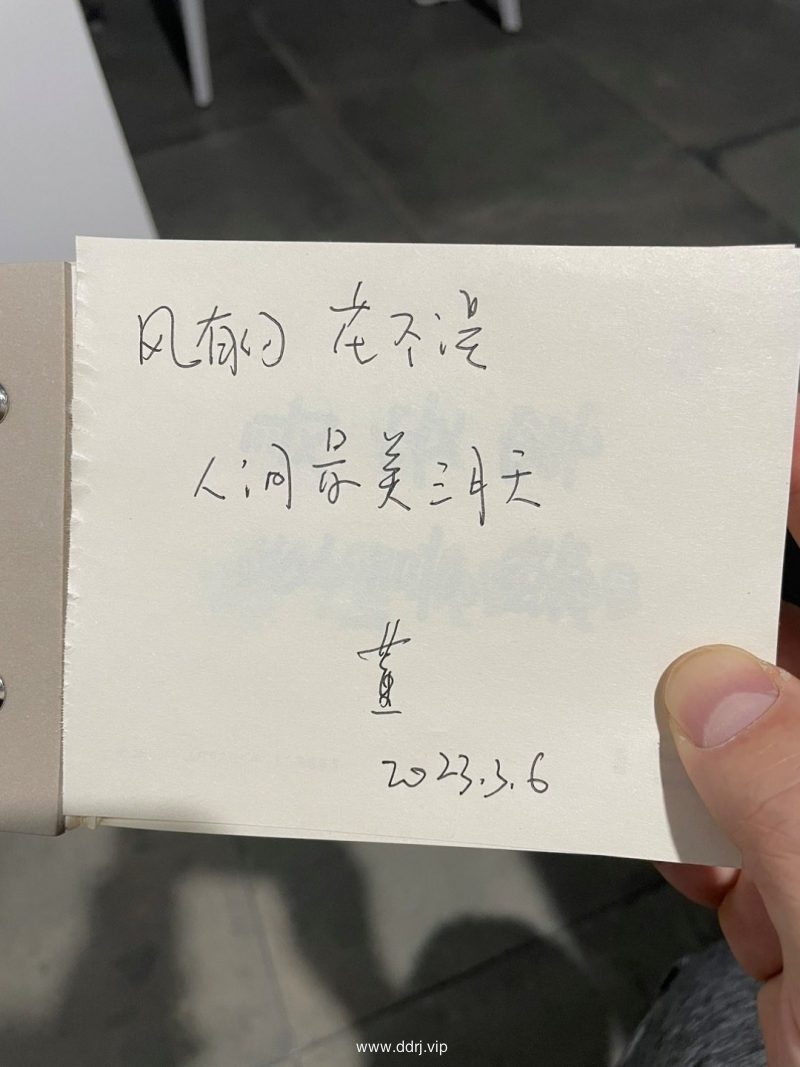 风有约 花不误
人间最美三月天
2023.3.6
www.ddrj.vip